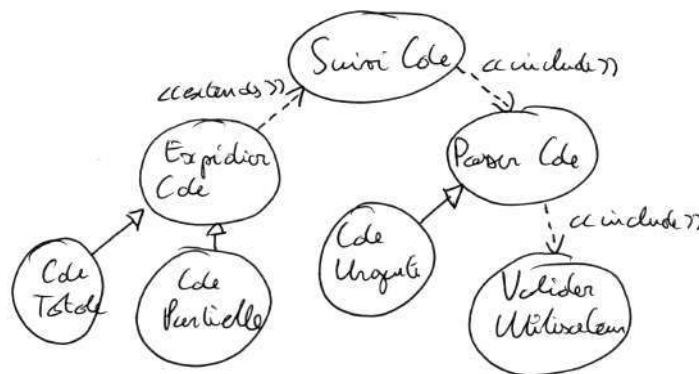 Suivi Cde
<<extends>>
<<include>>
Expédier
Cde
Passer Cde
Cde
Totale
Cde
Partielle
Cde
Urgente
<<include>>
Valider
Utilisateur